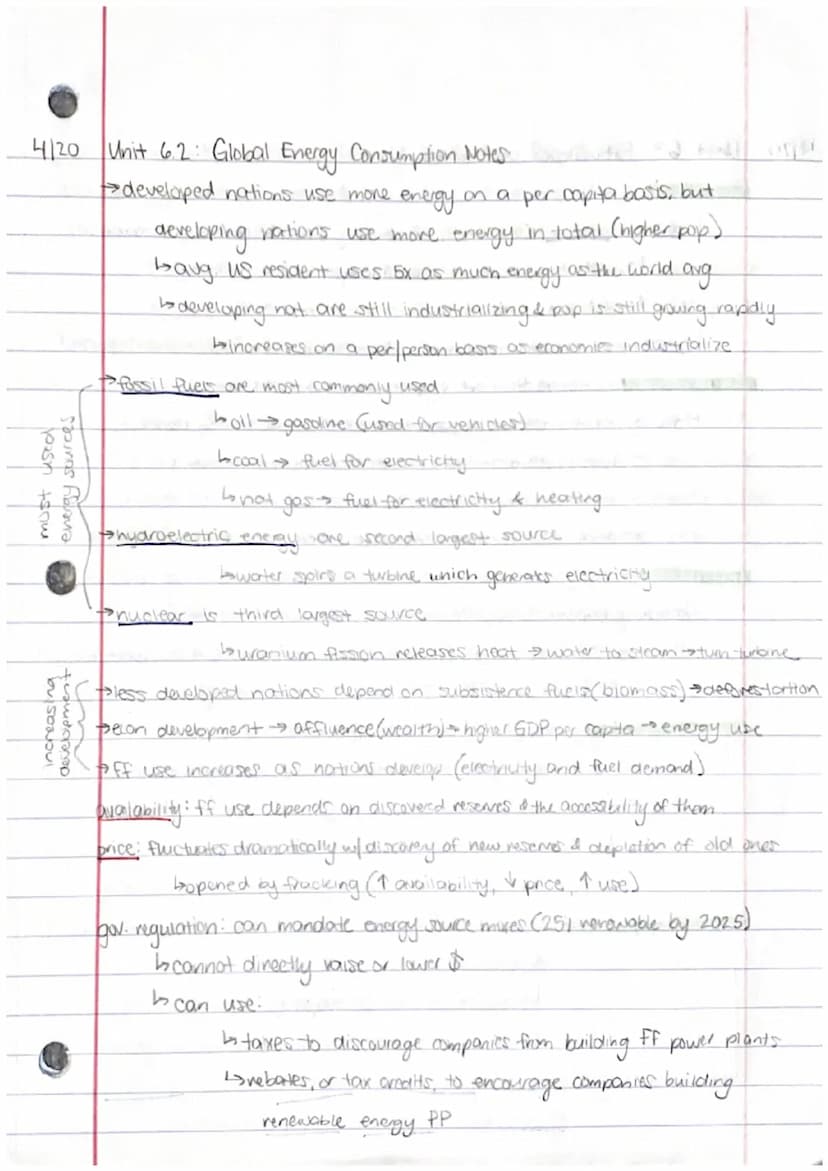 4/20 Unit 6.2: Global Energy Consumption Notes
→developed nations use more energy on a per capita basis, but
developing nations use more energy in total (higher pop)
↳avg US resident uses 5x as much energy as the world avg
↳developing nat are still industrializing & pop is still growing rapidly
↳increases on a per/person basis as economies industrialize
→fossil fuels are most commonly used
↳oil → gasoline (used for vehicles)
↳coal → fuel for electricity
↳nat gas → fuel for electricity & heating
most used
energy sources
→hydroelectric energy are second largest source
↳water spins a turbine which generates electricity
→nuclear is third largest source
↳uranium fission releases heat → water to steam → turn turbine
→less developed nations depend on subsistence fuels (biomass) → deforestation
→econ development → affluence (wealth) → higher GDP per capita → energy use
→FF use increases as nations develop (electricity and fuel demand)
increasing
development
availability: ff use depends on discovered reserves & the accessibility of them
price: fluctuates dramatically w/ discovery of new reserves & depletion of old ones
↳opened by fracking (↑ availability, ↓ price, ↑ use)
gov. regulation: can mandate energy source mixes (25% renewable by 2025)
↳cannot directly raise or lower $
↳can use:
↳taxes to discourage companies from building FF power plants
↳rebates, or tax credits, to encourage companies building
renewable energy PP